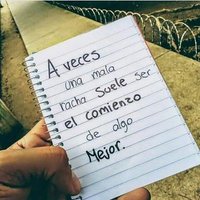 A veces
una mala
racha Suele ser
el comienzo
de algo
Mejor.